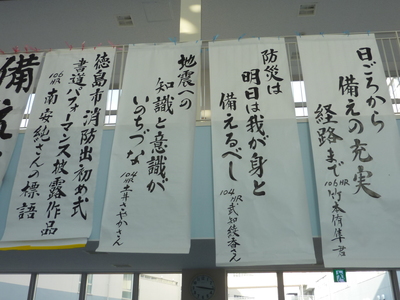 日ごろから
備えの充実
経路まで
106HR
防災は
明日は我が身と
備えるべし
104HR 武知綾香さん
地震への
知識と意識が
いのちづな
104HR 土井さやかさん
徳島市消防出初め式
書道パフォーマンス披露作品
106HR 南安純さんの標語
備え